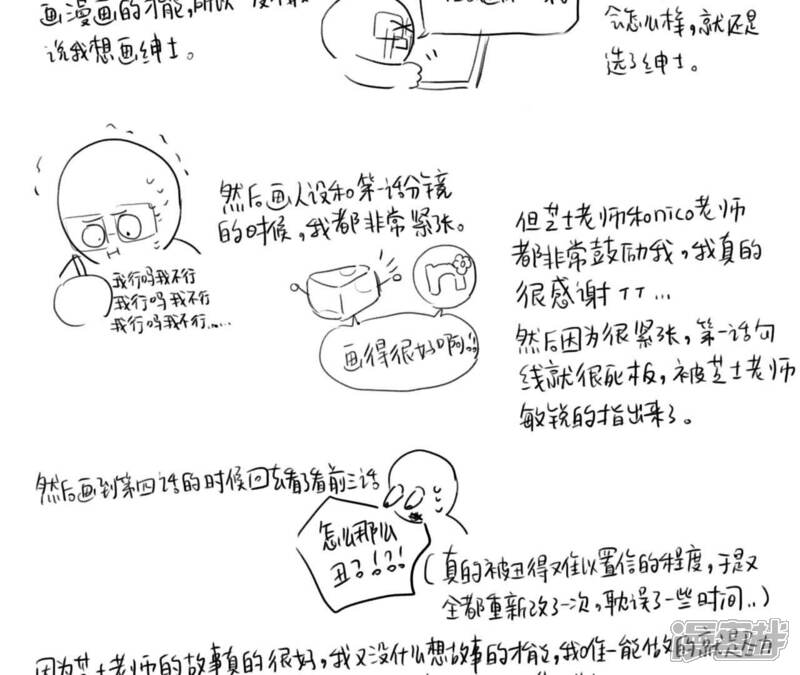 画漫画的才能,所以
说我想画绅士。
会怎么样,就还是
选了绅士。
然后画人设和第一话分镜
的时候,我都非常紧张。
我行吗我不行
我行吗我不行
我行吗我不行......
n
画得很好啊!!
但芝士老师和nico老师
都非常鼓励我,我真的
很感谢TT...
然后因为很紧张,第一话勾
线就很死板,被芝士老师
敏锐的指出来了。
然后画到第四话的时候回去看了看前三话
怎么那么
丑了!?!
(真的被丑得难以置信的程度,于是又
全都重新改了一次,耽误了一些时间..)
因为芝士老师的故事真的很好,我又没什么想故事的才能,我唯一能做的就是努力
漫客栈